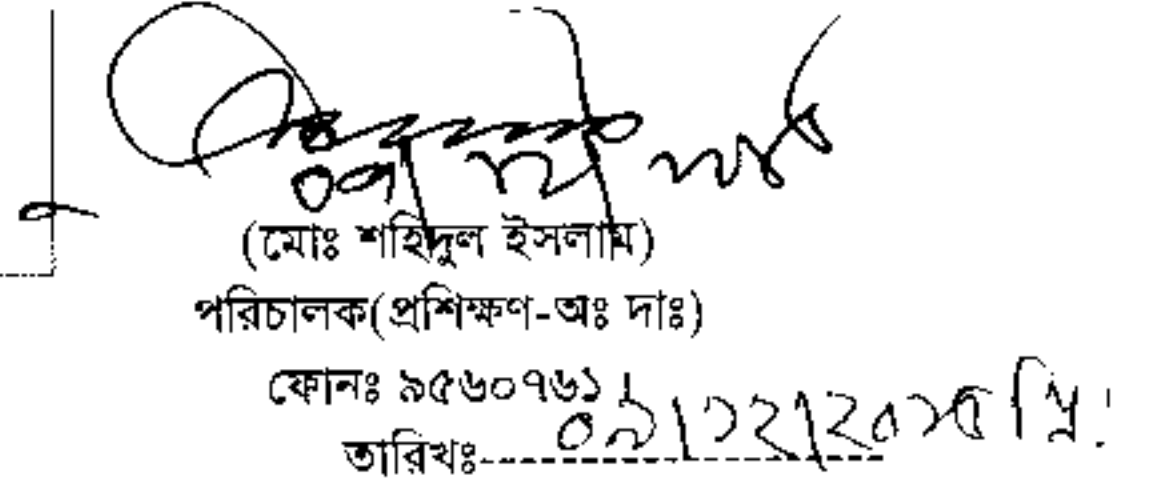 (মোঃ শহিদুল ইসলাম)
পরিচালক(প্রশিক্ষণ-অঃ দাঃ)
ফোনঃ ৯৫৬০৭৬১
তারিখঃ ০৯/১২/২০১৫ খ্রি.